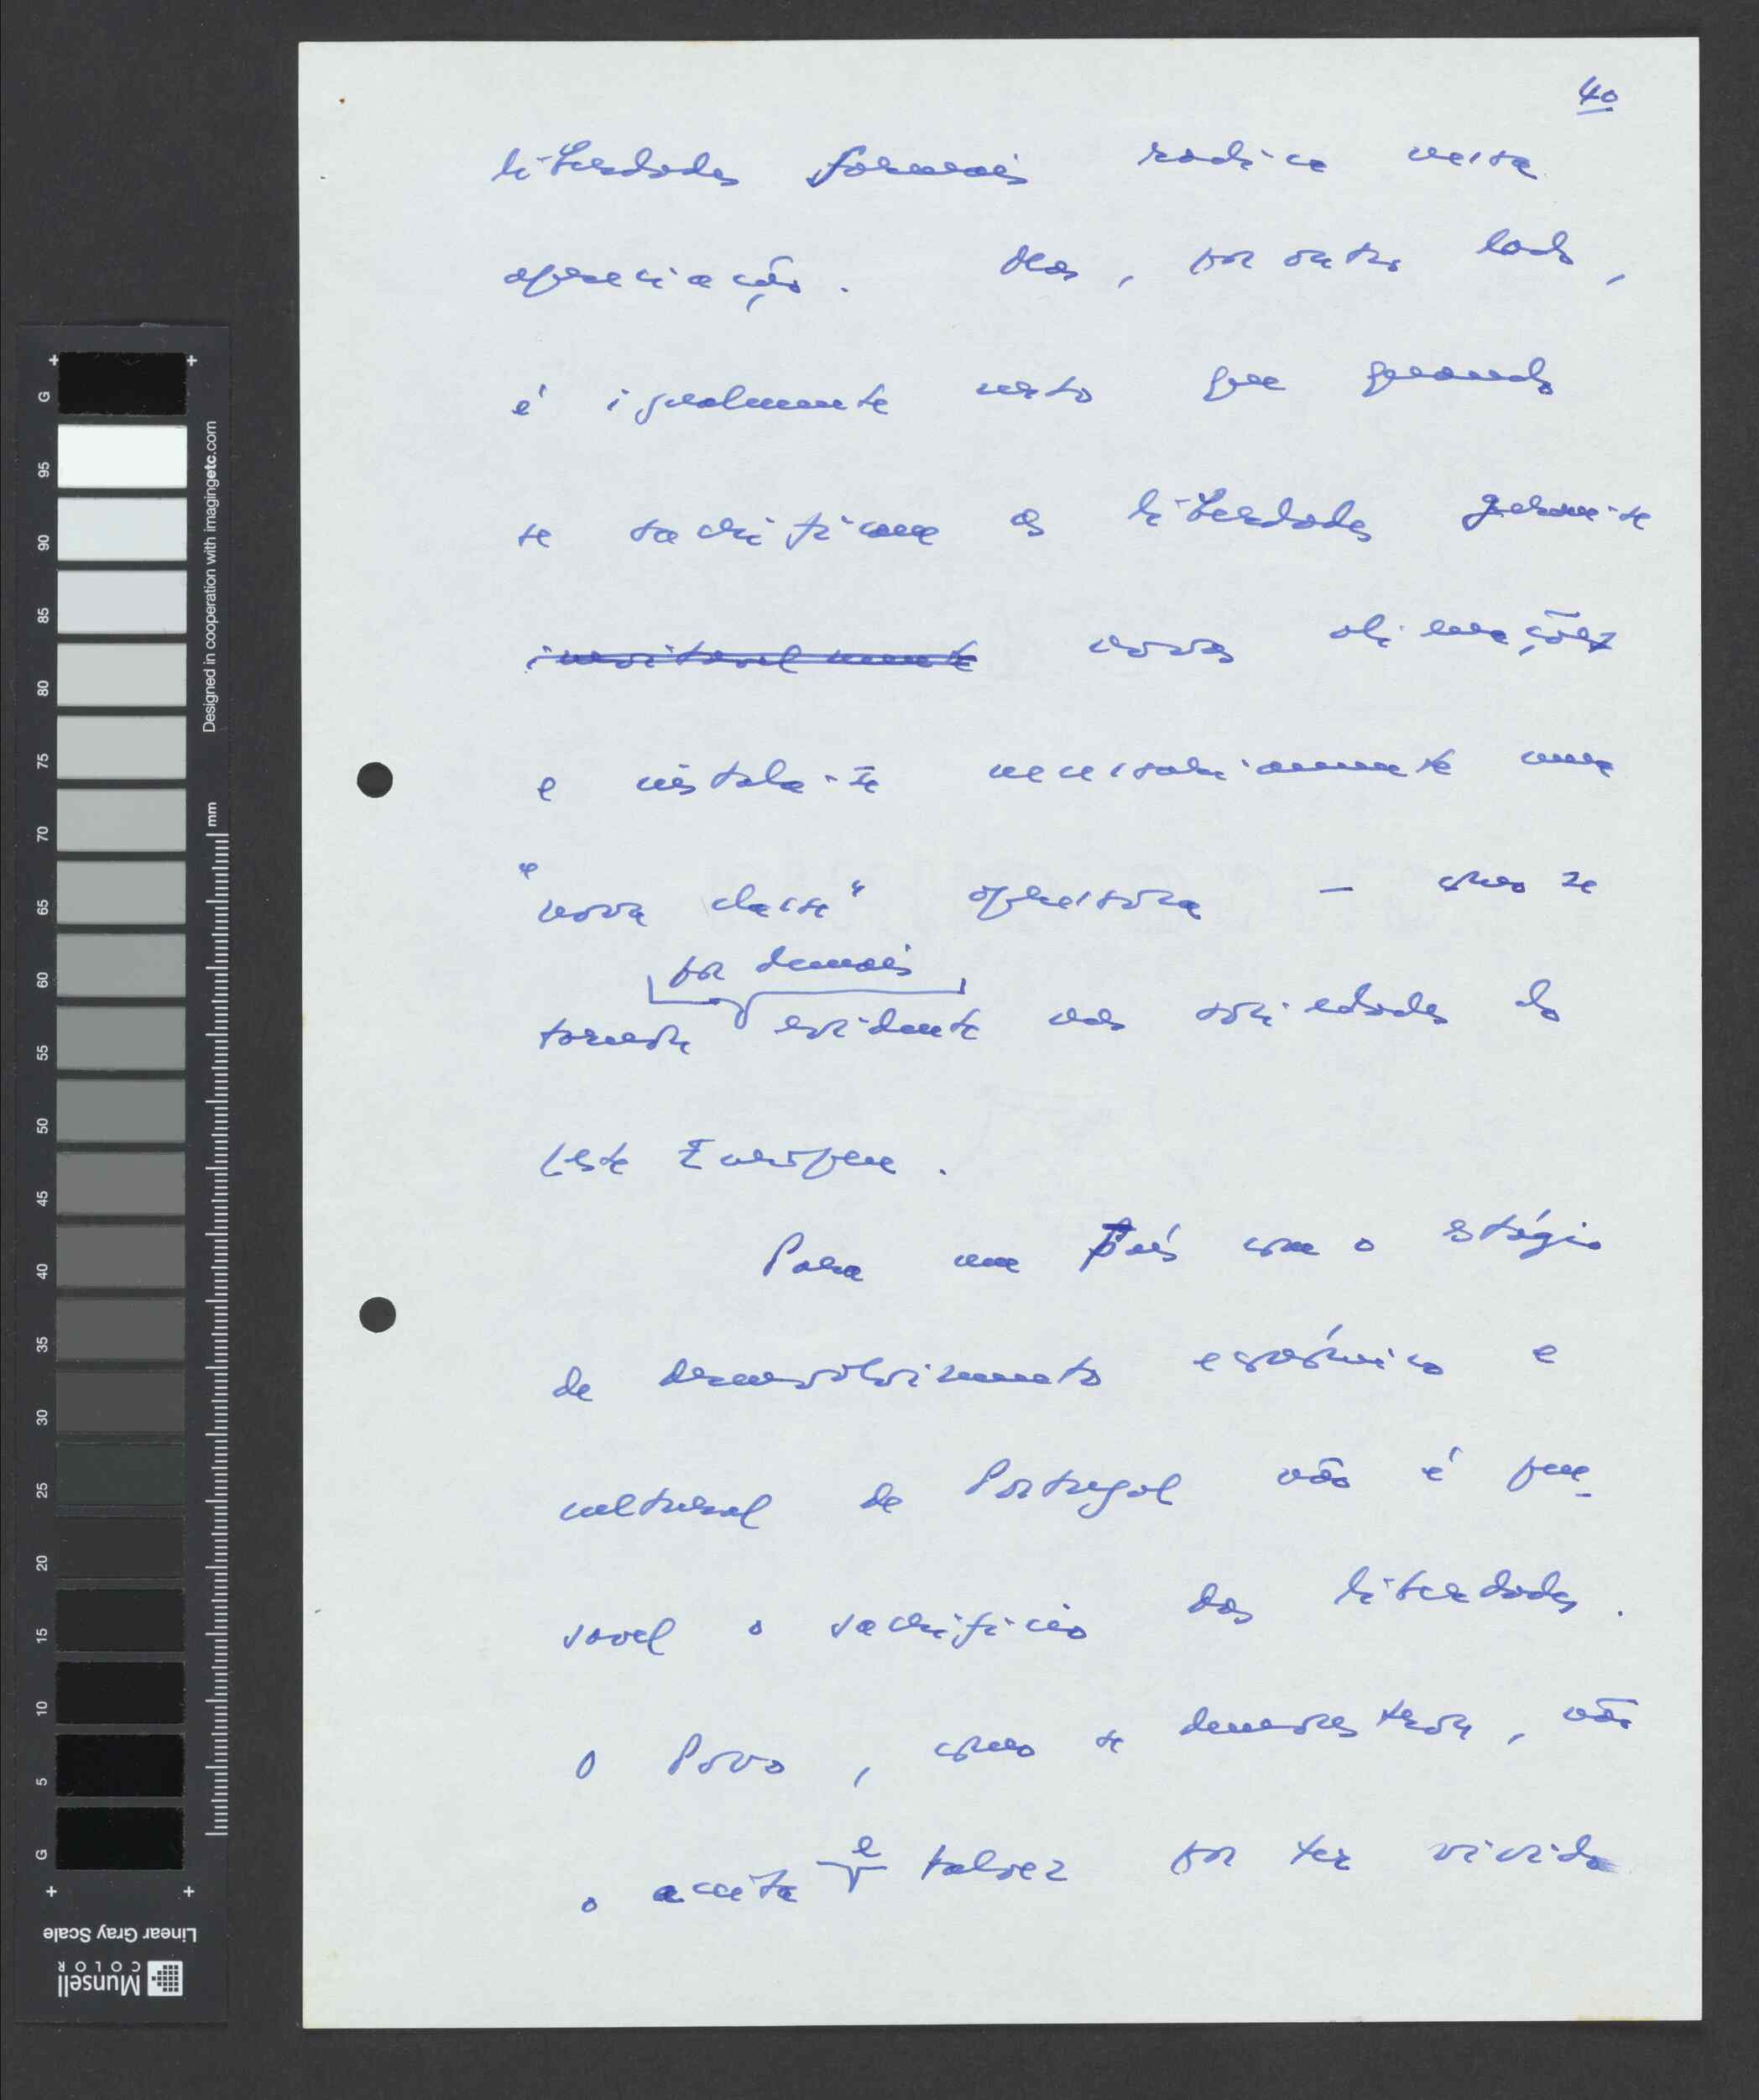 40
liberdades formais radica nessa
apreciação. Mas, por outro lado,
é igualmente certo que quando
se sacrificam as liberdades geram-se
inevitavelmente novas alienações
e instala-se necessariamente uma
"nova classe" opressora — como se
por demais
tornou evidente nas sociedades do
Leste Europeu.
Para um País com o estágio
de desenvolvimento económico e
cultural de Portugal não é pen-
savel o sacrifício das liberdades.
O Povo, como se demonstrou, não
o aceita e talvez por ter vivido
G
95
90
85
80
75
70
65
60
55
50
45
40
35
30
25
20
15
10
5
G
Designed in cooperation with imagingetc.com
mm
Linear Gray Scale
Munsell
COLOR